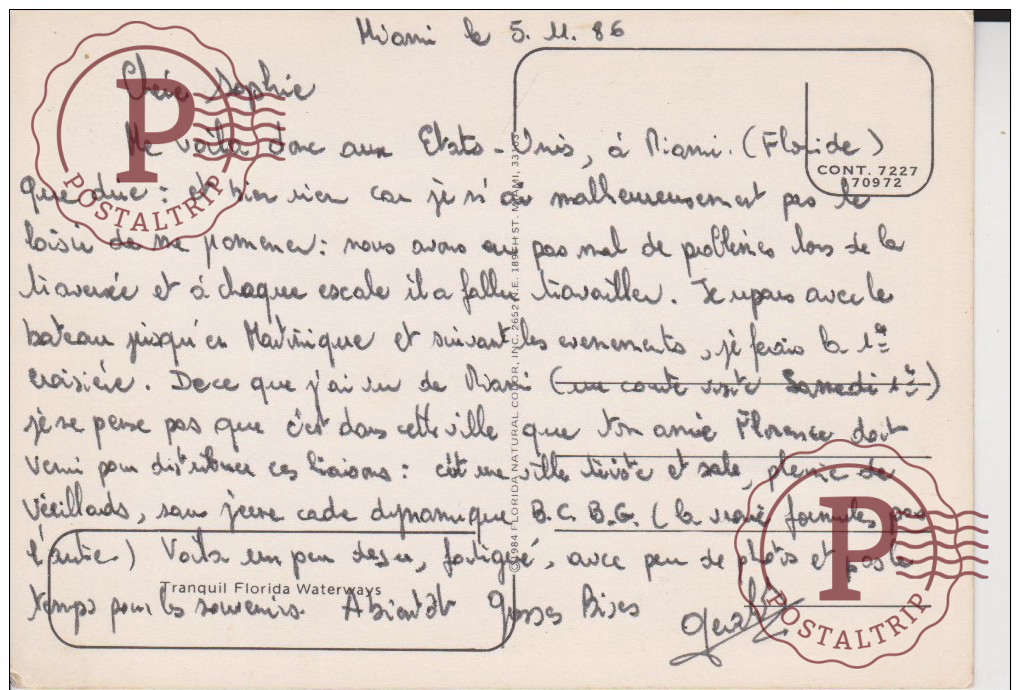 Miami le 5. 11. 86
Chère Sophie
Me voilà donc aux Etats-Unis, à Miami. (Floride)
Que dire : et bien rien car je n'ai malheureusement pas le
loisir de me promener : nous avons eu pas mal de problèmes lors de la
traversée et à chaque escale il a fallu travailler. Je repars avec le
bateau jusqu'en Martinique et suivant les evenements, je ferais la 1e
croisière. De ce que j'ai vu de Miami (une courte visite Samedi 1er)
je ne pense pas que c'est dans cette ville que ton amie Florence doit
venir pour distribuer ces liaisons : c'est une ville triste et sale, pleine de
vieillards, sans jeune cadre dynamique B.C.B.G. (la vraie formule, pas
l'autre) Voila un peu fatigué, avec peu de photos et pas le
temps pour les souvenirs. A bientôt Grosses Bises
CONT. 7227
70972
©1984 FLORIDA NATURAL COLOR, INC. 2652 N.E. 189TH ST. MIAMI, 33180
Tranquil Florida Waterways
P
POSTALTRIP
P
POSTALTRIP